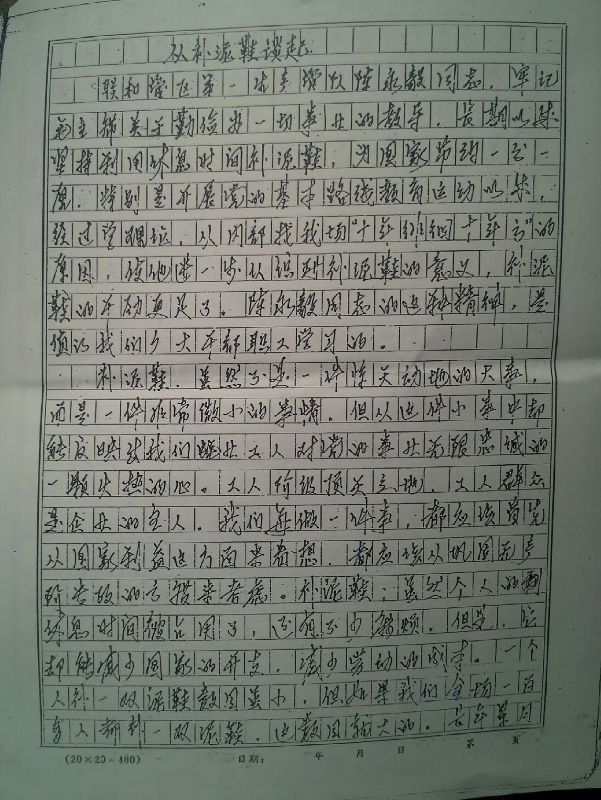 从补泥鞋谈起
联和滩区第一生产滩队陈永毅同志，牢记
毛主席关于勤俭办一切事业的教导，长期以来
坚持利用休息时间补泥鞋，为国家节约一分一
厘。特别是开展党的基本路线教育运动以来，
经过学理论，从内部找我场"十年徘徊十年亏"的
原因，使他进一步认识到补泥鞋的意义，补泥
鞋的干劲更足了。陈永毅同志的这种精神，是
值得我们广大干部职工学习的。
补泥鞋，虽然不是一件惊天动地的大事，
而是一件非常微小的事情。但从这件小事中却
能反映出我们盐业工人对党的事业无限忠诚的
一颗火热的心。工人阶级顶天立地，工人群众
是企业的主人。我们每做一件事，都应该首先
从国家利益这方面来着想，都应该从巩固无产
阶级专政的高度来考虑。补泥鞋，虽然个人的
休息时间被占用了，还有不少麻烦。但是，它
却能减少国家的开支，减少劳动的成本。一个
人补一双泥鞋数目虽小，但如果我们全场一百
多人都补一双泥鞋，这数目就大的。长年累月
(20×20=400) 日期： 年 月 日 第 页